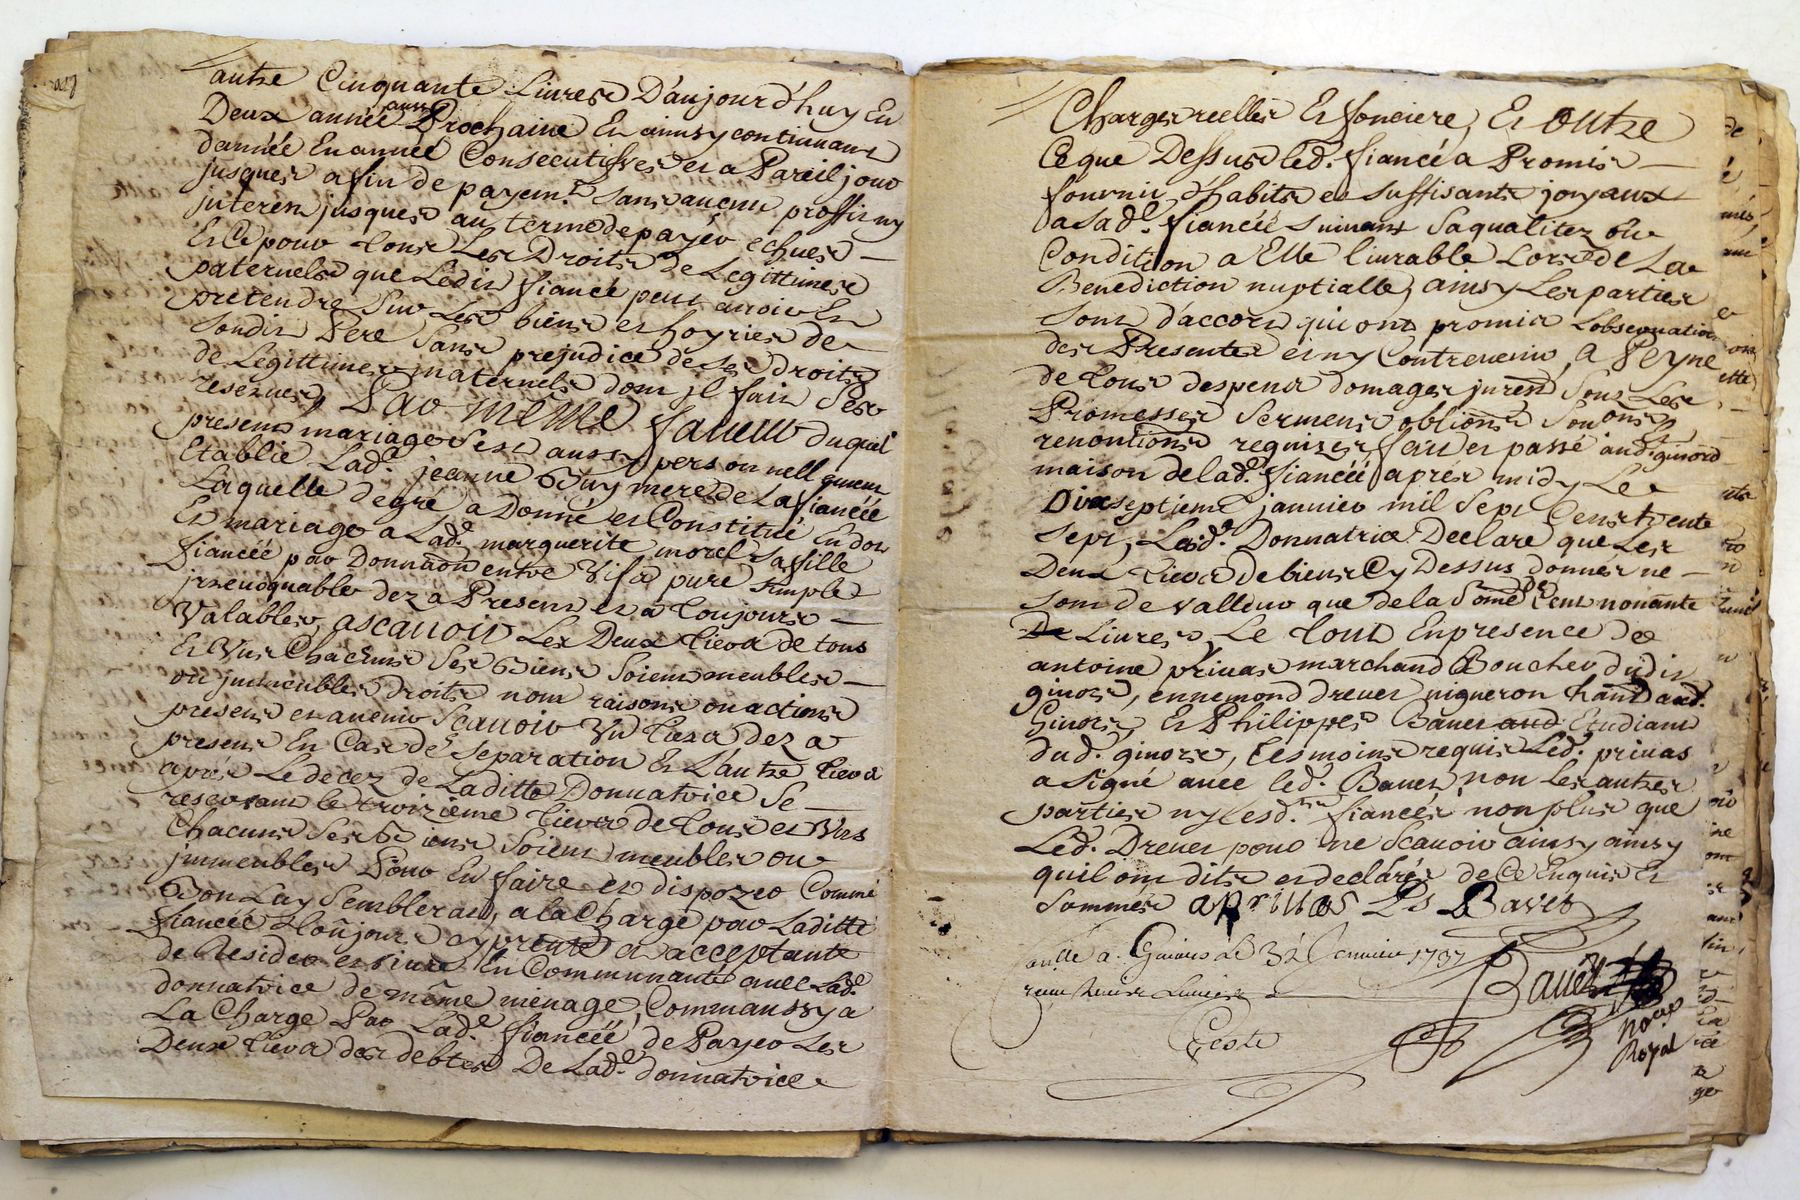 autre Cinquante Livres D'aujourd'huy En
Deux année aussy Prochaine En ainsy continuant
dannée En année Consecutifves et a Pareil jour
jusques a fin de payemt. sans aucun proffit ny
jnterest jusques au terme de payer echues
Et Ce pour tous Les Droits de Legittimes
paternels que Ledit fiancé peut avoir Et
pretendre sur Les biens et hoyries de
sondit Pere sans prejudice de ses droits
de Legittimes maternels dont jl fait
reserves, Par même faveur duquel
present mariage s'est aussy personnellement
Etablie Lade. jeanne Guy mere de La fiancéé
Laquelle de gré a Donné et Constitué En dot
Et mariage a Lade. marguerite morel sa fille
fiancéé par Donnaōn entre Vifs pure simple
jrrevoquable dez a Present et a toujours
Valables, ascavoir Les Deux tiers de tous
Et Vns Chacuns Ses Biens Soient meubles
ou jmmeubles droits nom raisons ou actions
present et avenir Scavoir Vn tiers dez a
present En Cas de Separation Et L'autre tiers
aprés Le decez de Laditte Donnatrice Se
reservant le troizieme tiers de tous et Vns
Chacuns Ses Biens Soient meubles ou
jmmeubles Pour En faire et dispozer Comme
Bon Luy Semblera, a la Charge par Laditte
fiancéé toūjours cy prente et acceptante
de Resider et vivre En Communauté avec Lade.
donnatrice de même menage, Comm aussy a
La Charge Par Lade. fiancéé de Payer Les
Deux tiers des debtes De Lade. donnatrice
Charges reelles Et fonciere, Et Outre
Ce que Dessus led. fiancé a Promis
fournir d'habits et suffisants joyaux
a Sade. fiancéé suivant Sa qualitez ou
Condition a Elle livrable Lors de La
Benediction nuptialle, ainsy Les parties
sont d'accord qui ont promis Lobservation
des Presentes et ny Contrevenir, a Peyne
de tous despens domages jnrest Sous Les
Promesses serments obliōns
renontions requizes fait et passé aud ginord
maison de lade. fiancéé apres midy Le
Dixseptieme janvier mil Sept Cens trente
sept, Lade. Donnatrice Declare que Les
Deux tiers de biens Cy Dessus donnes ne
sont de valleur que de la Somē de Cent nonante
Livres, Le tout En presence de
antoine privas marchand Boucher dudit
givors, ennemond drevet vigneron hant aud.
Givors, Et Philippes Bavet Etudiant
dud. givors, tesmoins requis Led. privas
a signé avec led. Bavet, non Les autres
parties ny lesd. fiancés non plus que
Led. Drevet pour ne Scavoir ainsy
quil ont dits et declarés de Ce Enquis Et
Sommés a privas Ls Bavet
a Givors le 31 Janvier 1737
Bavet
Nore
Royal